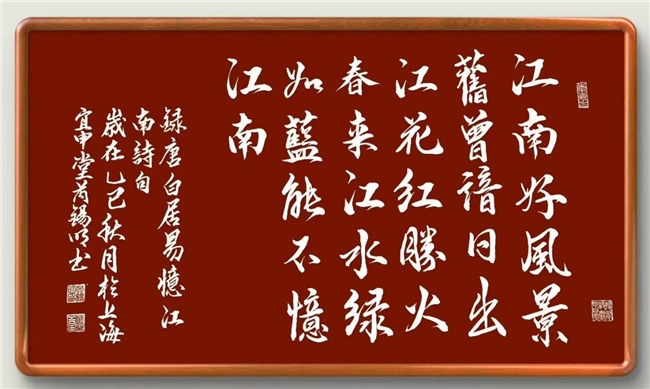 江南好風景
舊曾諳日出
江花红勝火
春来江水緑
如藍能不憶
江南
録唐白居易憶江
南詩句
歲在乙巳秋月於上海
芮錫明书